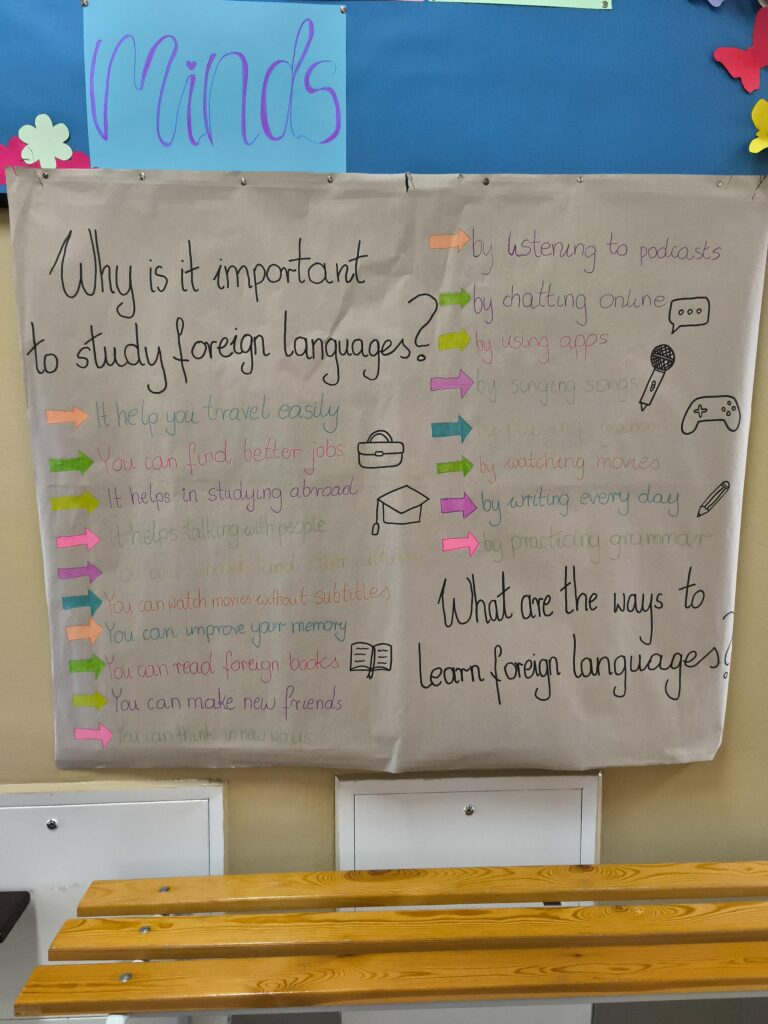 minds
Why is it important
to study foreign languages?
It help you travel easily
You can find better jobs
It helps in studying abroad
It helps talking with people
You can understand other cultures
You can watch movies without subtitles
You can improve your memory
You can read foreign books
You can make new friends
You can think in new ways
by listening to podcasts
by chatting online
by using apps
by singing songs
by playing games
by watching movies
by writing every day
by practicing grammar
What are the ways to
learn foreign languages?